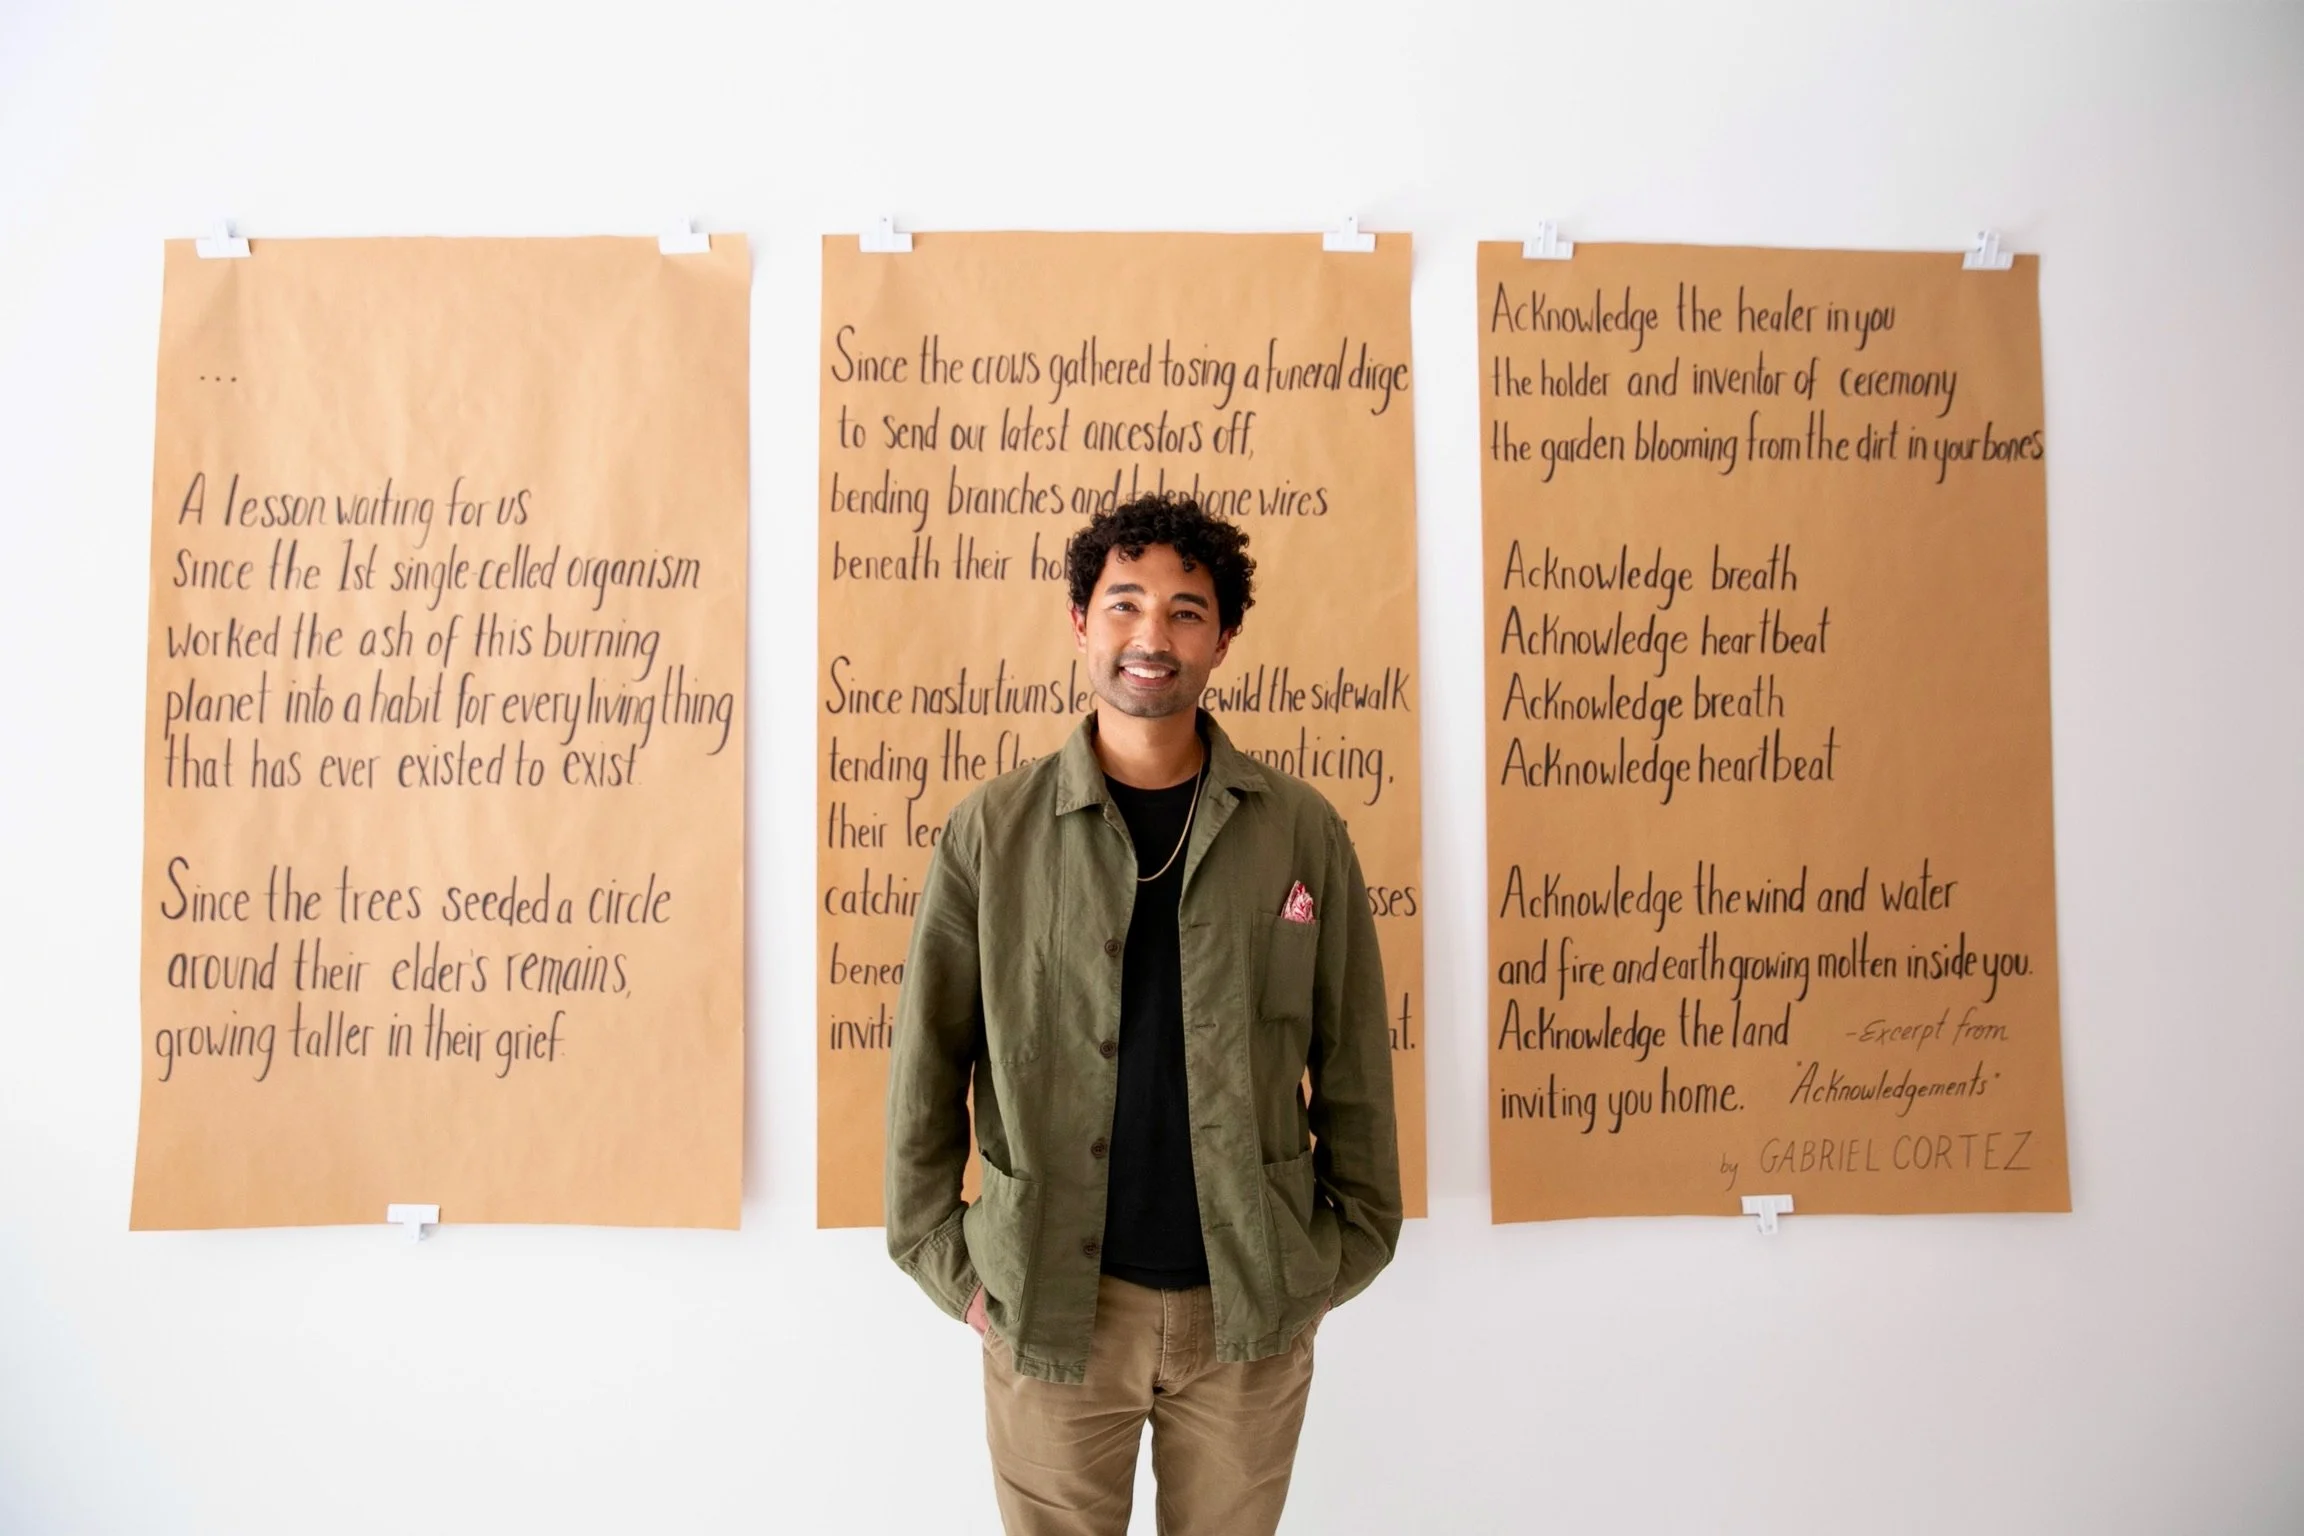 ...
A lesson waiting for us
since the 1st single-celled organism
worked the ash of this burning
planet into a habit for every living thing
that has ever existed to exist.
Since the trees seeded a circle
around their elder's remains,
growing taller in their grief.
Since the crows gathered to sing a funeral dirge
to send our latest ancestors off,
bending branches and telephone wires
beneath their
Since nasturtiums the sidewalk
tending the
their
Acknowledge the healer in you
the holder and inventor of ceremony
the garden blooming from the dirt in your bones
Acknowledge breath
Acknowledge heartbeat
Acknowledge breath
Acknowledge heartbeat
Acknowledge the wind and water
and fire and earth growing molten inside you.
Acknowledge the land
inviting you home.
-Excerpt from
"Acknowledgements"
by GABRIEL CORTEZ